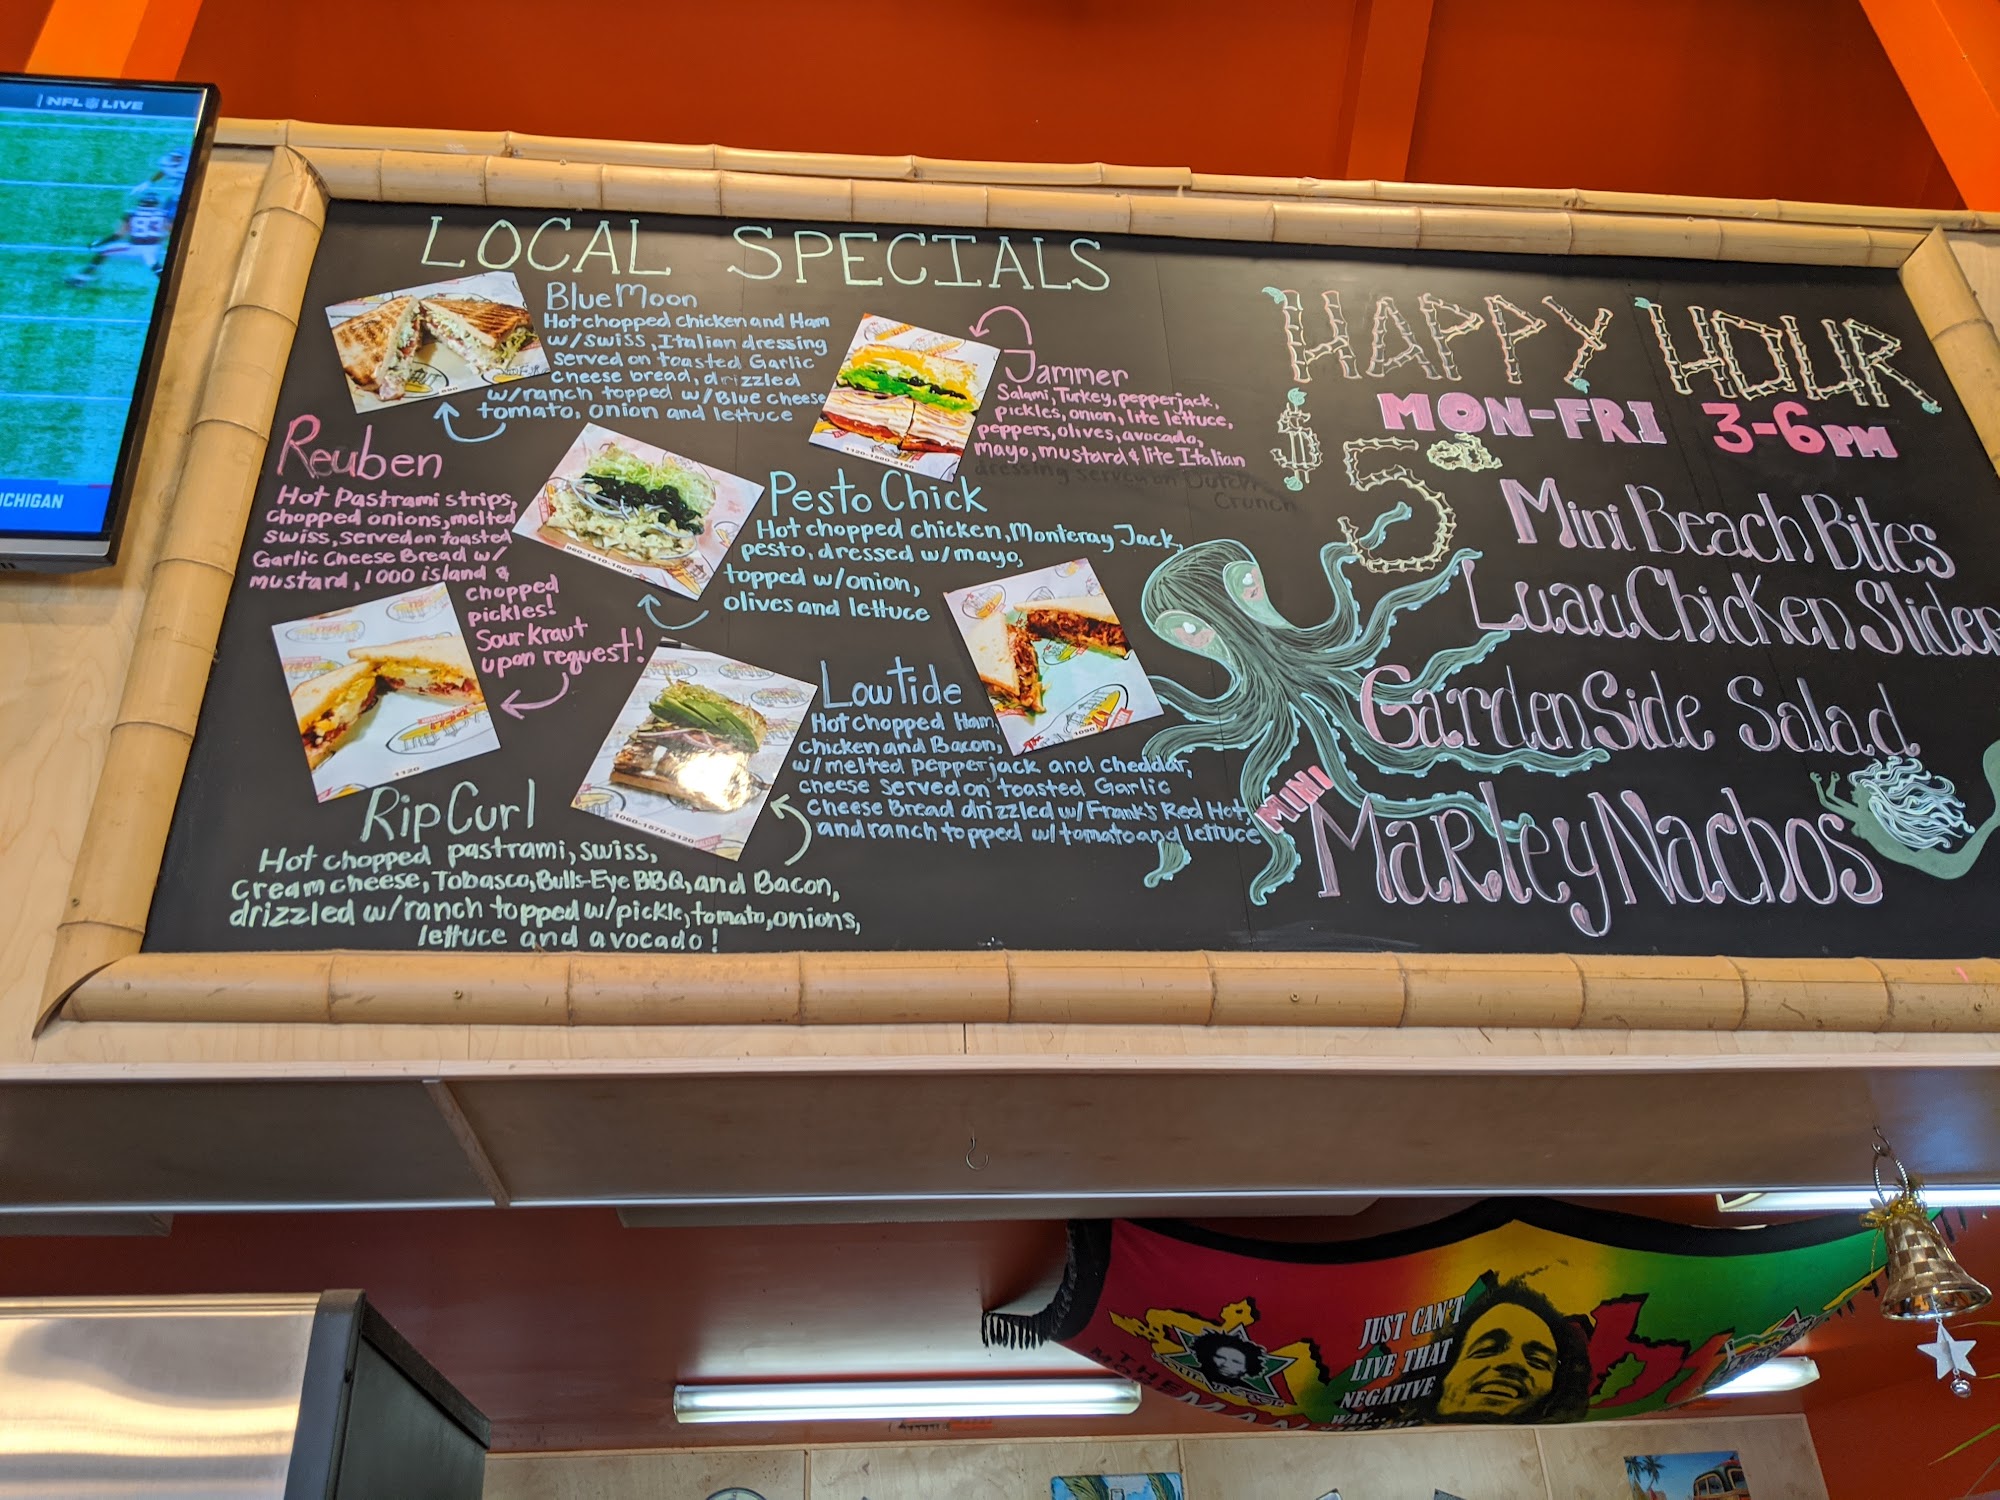 NFL LIVE
ICHIGAN
LOCAL SPECIALS
Blue Moon
Hot chopped chicken and Ham
w/swiss, Italian dressing
served on toasted Garlic
cheese bread, drizzled
w/ranch topped w/Blue cheese
tomato, onion and lettuce
690
Jammer
Salami, Turkey, pepperjack,
pickles, onion, lite lettuce,
peppers, olives, avocado,
mayo, mustard & lite Italian
dressing served on Dutch
Crunch
1120-1680-2150
Reuben
Hot Pastrami strips,
chopped onions, melted
swiss, served on toasted
Garlic Cheese Bread w/
mustard, 1000 island &
chopped
pickles!
Sour kraut
upon request!
1120
Pesto Chick
Hot chopped chicken, Monteray Jack,
pesto, dressed w/mayo,
topped w/onion,
olives and lettuce
960-1410-1860
1090
Low Tide
Hot chopped Ham,
chicken and Bacon,
w/melted pepperjack and cheddar,
cheese served on toasted Garlic
Cheese Bread drizzled w/Frank's Red Hot,
and ranch topped w/tomato and lettuce
1060-1670-2120
Rip Curl
Hot chopped pastrami, swiss,
cream cheese, Tobasco, Bulls-Eye BBQ, and Bacon,
drizzled w/ranch topped w/pickle, tomato, onions,
lettuce and avocado!
HAPPY HOUR
MON-FRI 3-6PM
$5ea
Mini Beach Bites
Luau Chicken Slider
GardenSide Salad
MINI
Marley Nachos
JUST CAN'T
LIVE THAT
NEGATIVE
WAY...
THE
MAN